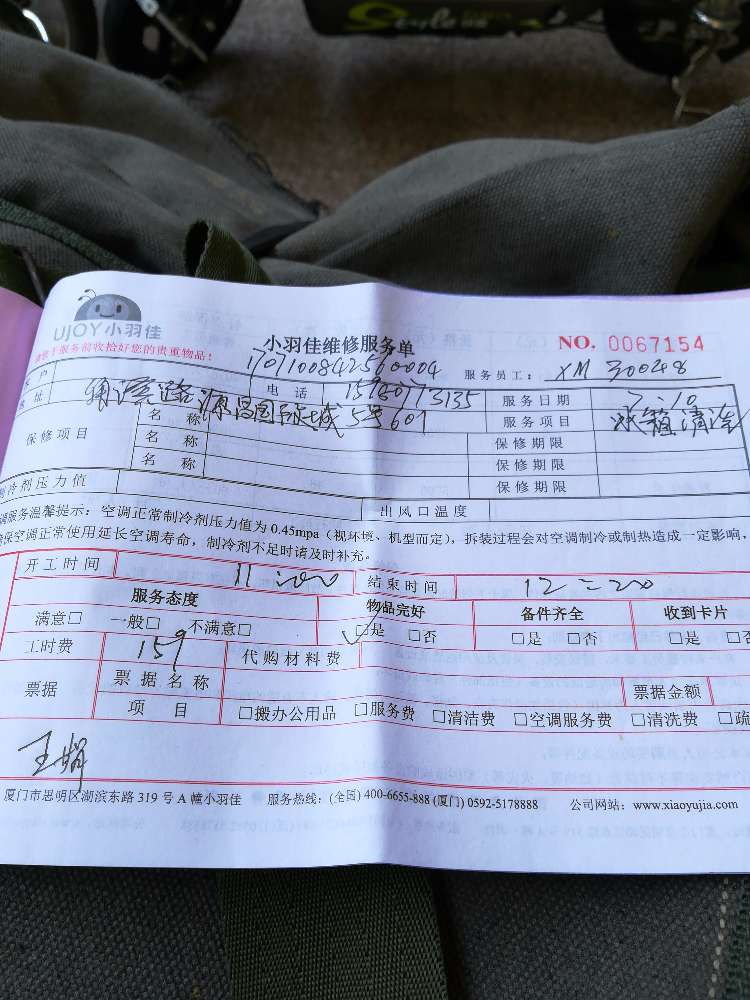 Style
UJOY小羽佳
小羽佳维修服务单 NO. 0067154
请您于服务前收拾好您的贵重物品!
客户 1707100842560004 服务员工: XM 30048
地址 源昌国际城5号601 电话 服务日期 7.10
保修项目 名称 保修期限 服务项目 水箱清洗
名称 保修期限
名称 保修期限
制冷剂压力值 出风口温度
调服务温馨提示:空调正常制冷剂压力值为 0.45mpa(视环境、机型而定),拆装过程会对空调制冷或制热造成一定影响,
确保空调正常使用延长空调寿命,制冷剂不足时请及时补充。
开工时间 11:00 结束时间 12:20
服务态度 物品完好 备件齐全 收到卡片
满意□ 一般□ 不满意□ □是 □否 □是 □否 □是 □否
工时费 159 代购材料费
票据 票据名称 票据金额
项目 □搬办公用品 □服务费 □清洁费 □空调服务费 □清洗费 □疏
王娟
厦门市思明区湖滨东路 319 号 A 幢小羽佳 服务热线:(全国) 400-6655-888 (厦门) 0592-5178888 公司网站:www.xiaoyujia.com